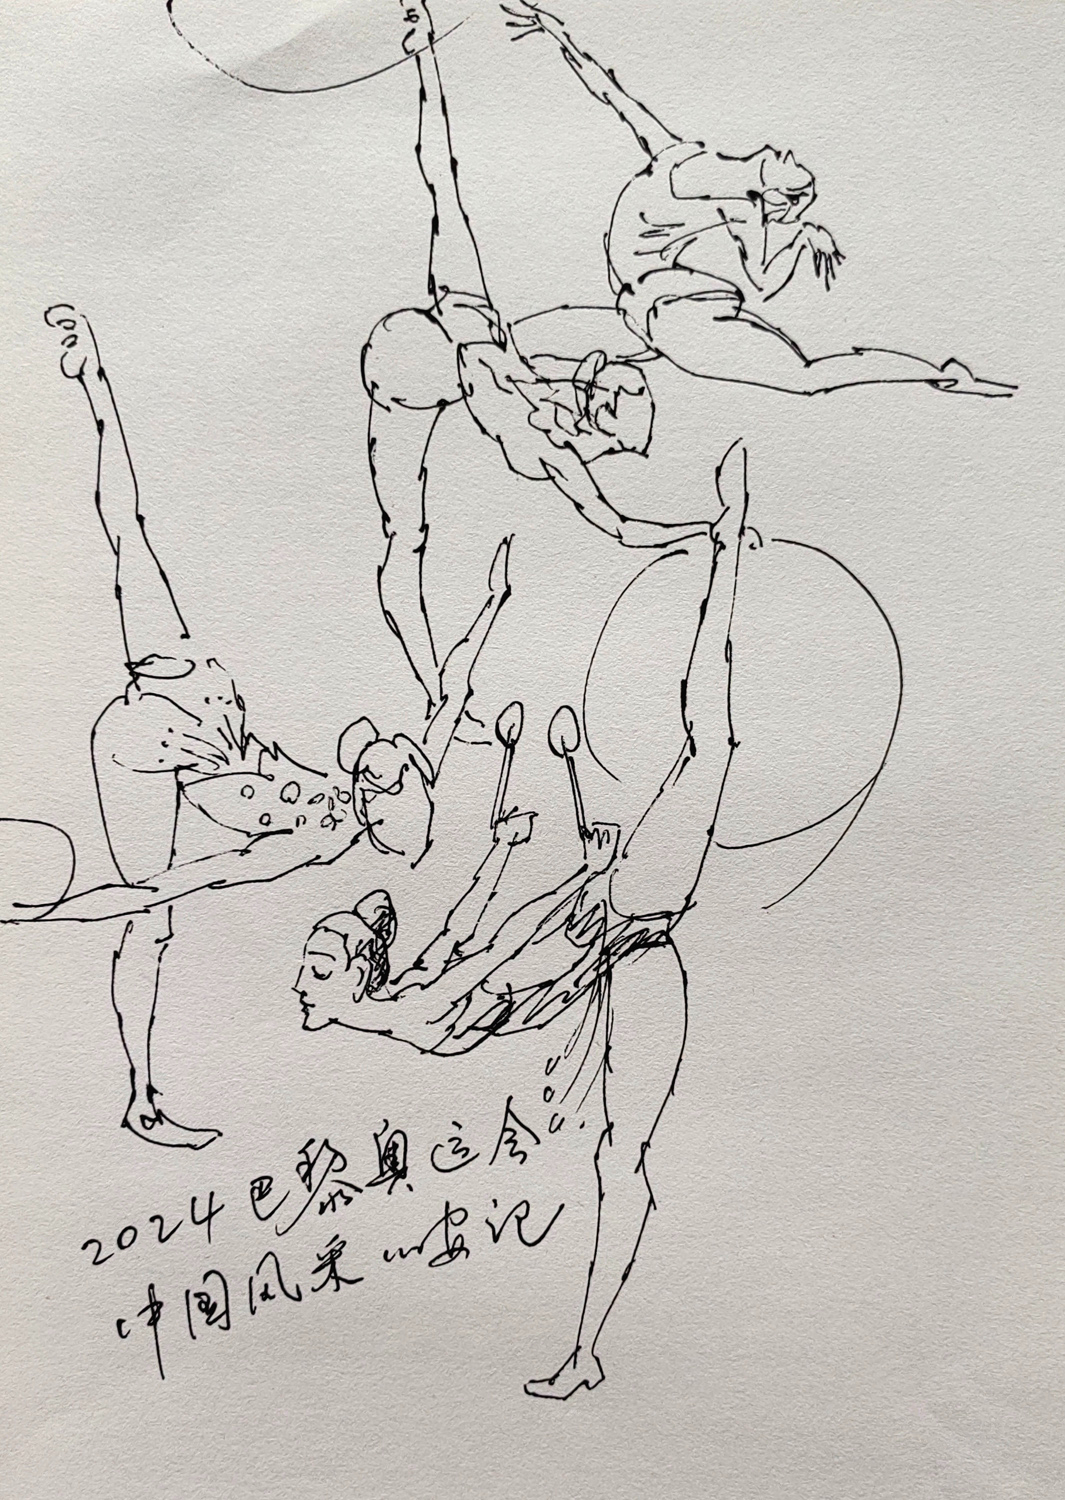 2024巴黎奥运会
中国风采 小安记